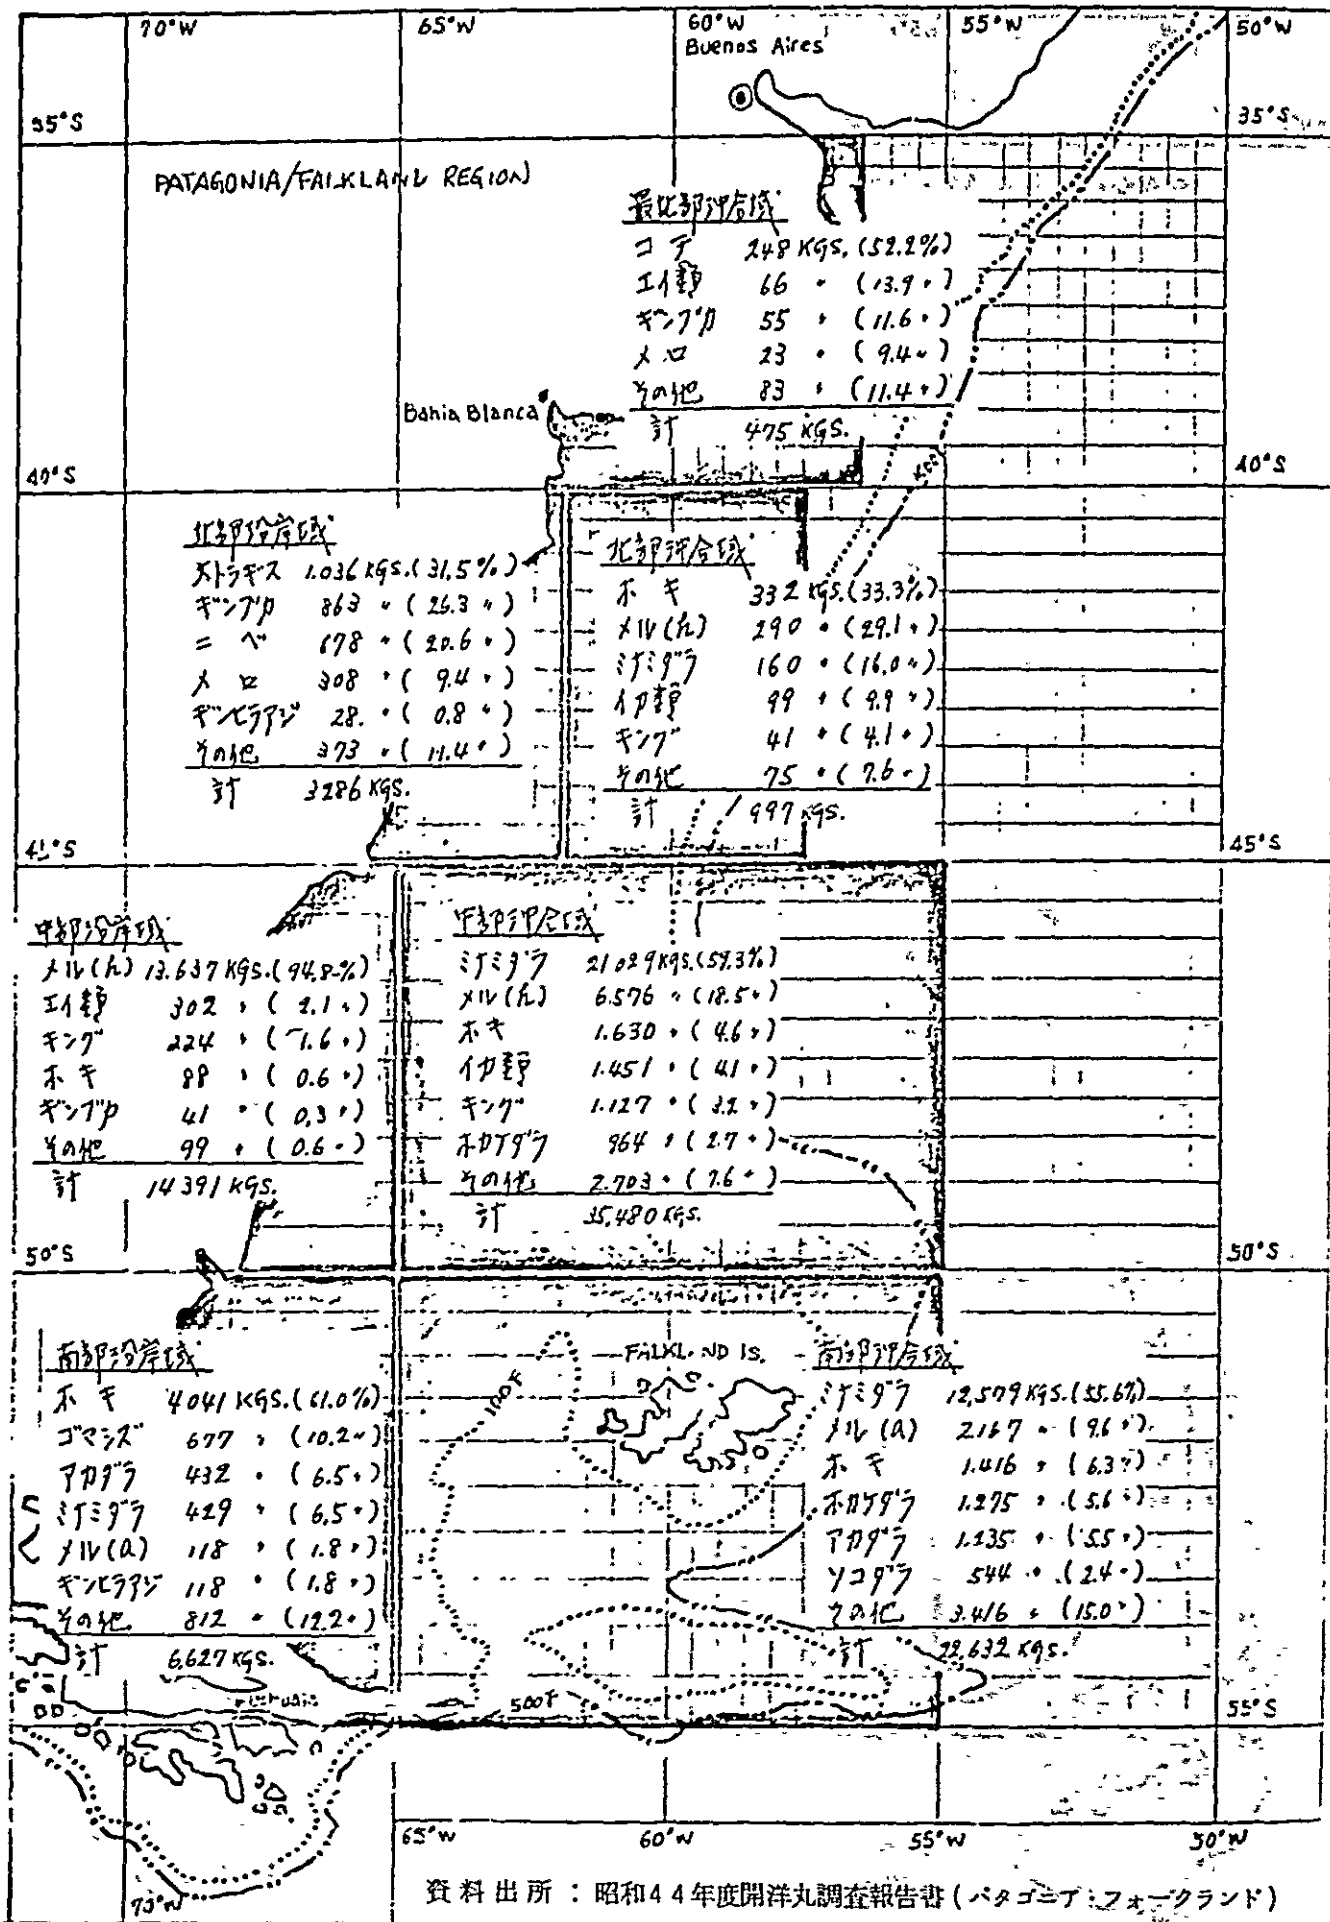 70°W 65°W 60°W 55°W 50°W
Buenos Aires
35°S 35°S
PATAGONIA/FALKLAND REGION
最北部沖合域
コデ 248 KGS. (52.2%)
エイ類 66 〃 (13.9〃)
ギンブカ 55 〃 (11.6〃)
メロ 23 〃 (9.4〃)
その他 83 〃 (11.4〃)
計 475 KGS.
Bahia Blanca
40°S 40°S
北部沿岸域
大トラギス 1.036 KGS. (31.5%)
ギンブカ 863 〃 (26.3〃)
ニベ 678 〃 (20.6〃)
メロ 308 〃 (9.4〃)
ギンヒラアジ 28. 〃 (0.8〃)
その他 373 〃 (11.4〃)
計 3286 KGS.
北部沖合域
ホキ 332 KGS. (33.3%)
メル(h) 290 〃 (29.1〃)
ミナミダラ 160 〃 (16.0〃)
イカ類 99 〃 (9.9〃)
キング 41 〃 (4.1〃)
その他 75 〃 (7.6〃)
計 997 KGS.
45°S
中部沿岸域
メル(h) 13.637 KGS. (94.8%)
エイ類 302 〃 (2.1〃)
キング 224 〃 (1.6〃)
ホキ 88 〃 (0.6〃)
ギンブカ 41 〃 (0.3〃)
その他 99 〃 (0.6〃)
計 14391 KGS.
中部沖合域
ミナミダラ 21029 KGS. (59.3%)
メル(h) 6.576 〃 (18.5〃)
ホキ 1.630 〃 (4.6〃)
イカ類 1.451 〃 (4.1〃)
キング 1.127 〃 (3.2〃)
ホカケダラ 964 〃 (2.7〃)
その他 2.703 〃 (7.6〃)
計 35,480 KGS.
50°S 50°S
南部沿岸域
ホキ 4041 KGS. (61.0%)
ゴマシズ 677 〃 (10.2〃)
アカダラ 432 〃 (6.5〃)
ミナミダラ 429 〃 (6.5〃)
メル(a) 118 〃 (1.8〃)
ギンヒラアジ 118 〃 (1.8〃)
その他 812 〃 (12.2〃)
計 6,627 KGS.
100F
FALKLAND IS.
南部沖合域
ミナミダラ 12,579 KGS. (55.6%)
メル(a) 2167 〃 (9.6〃)
ホキ 1.416 〃 (6.3〃)
ホカケダラ 1.275 〃 (5.6〃)
アカダラ 1.235 〃 (5.5〃)
ソコダラ 544 〃 (2.4〃)
その他 3.416 〃 (15.0〃)
計 22,632 KGS.
500F
55°S
65°W 60°W 55°W 50°W
資料出所:昭和44年度開洋丸調査報告書(パタゴニア・フォークランド)